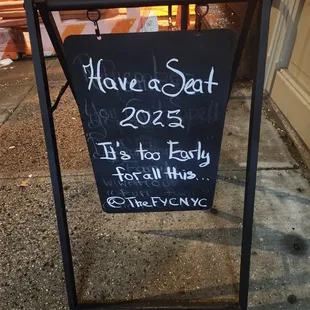 Have a Seat
2025
It's too Early
for all this...
@TheFYCNYC